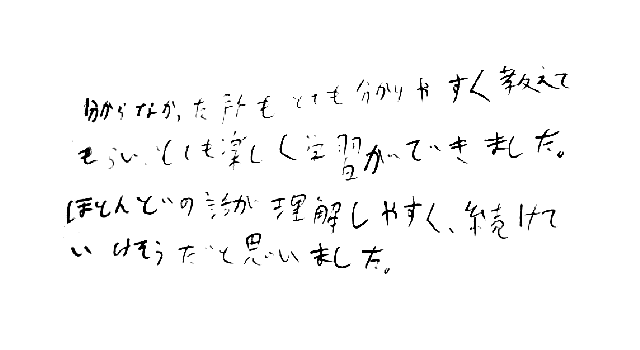 分からなかった所もとても分かりやすく教えて
もらい、とても楽しく学習ができました。
ほとんどの話が理解しやすく、続けて
いけそうだと思いました。